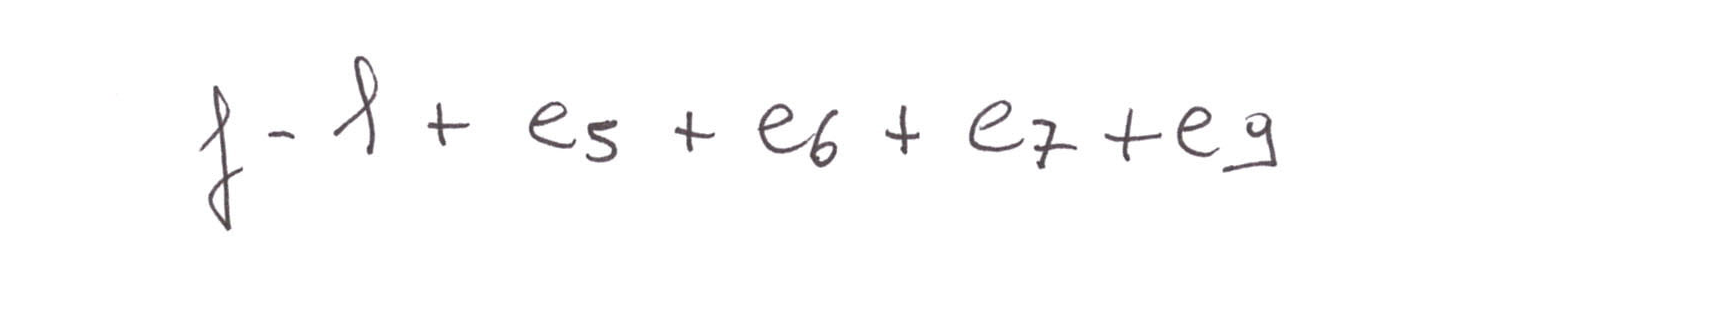 f - l + e₅ + e₆ + e₇ + e₉